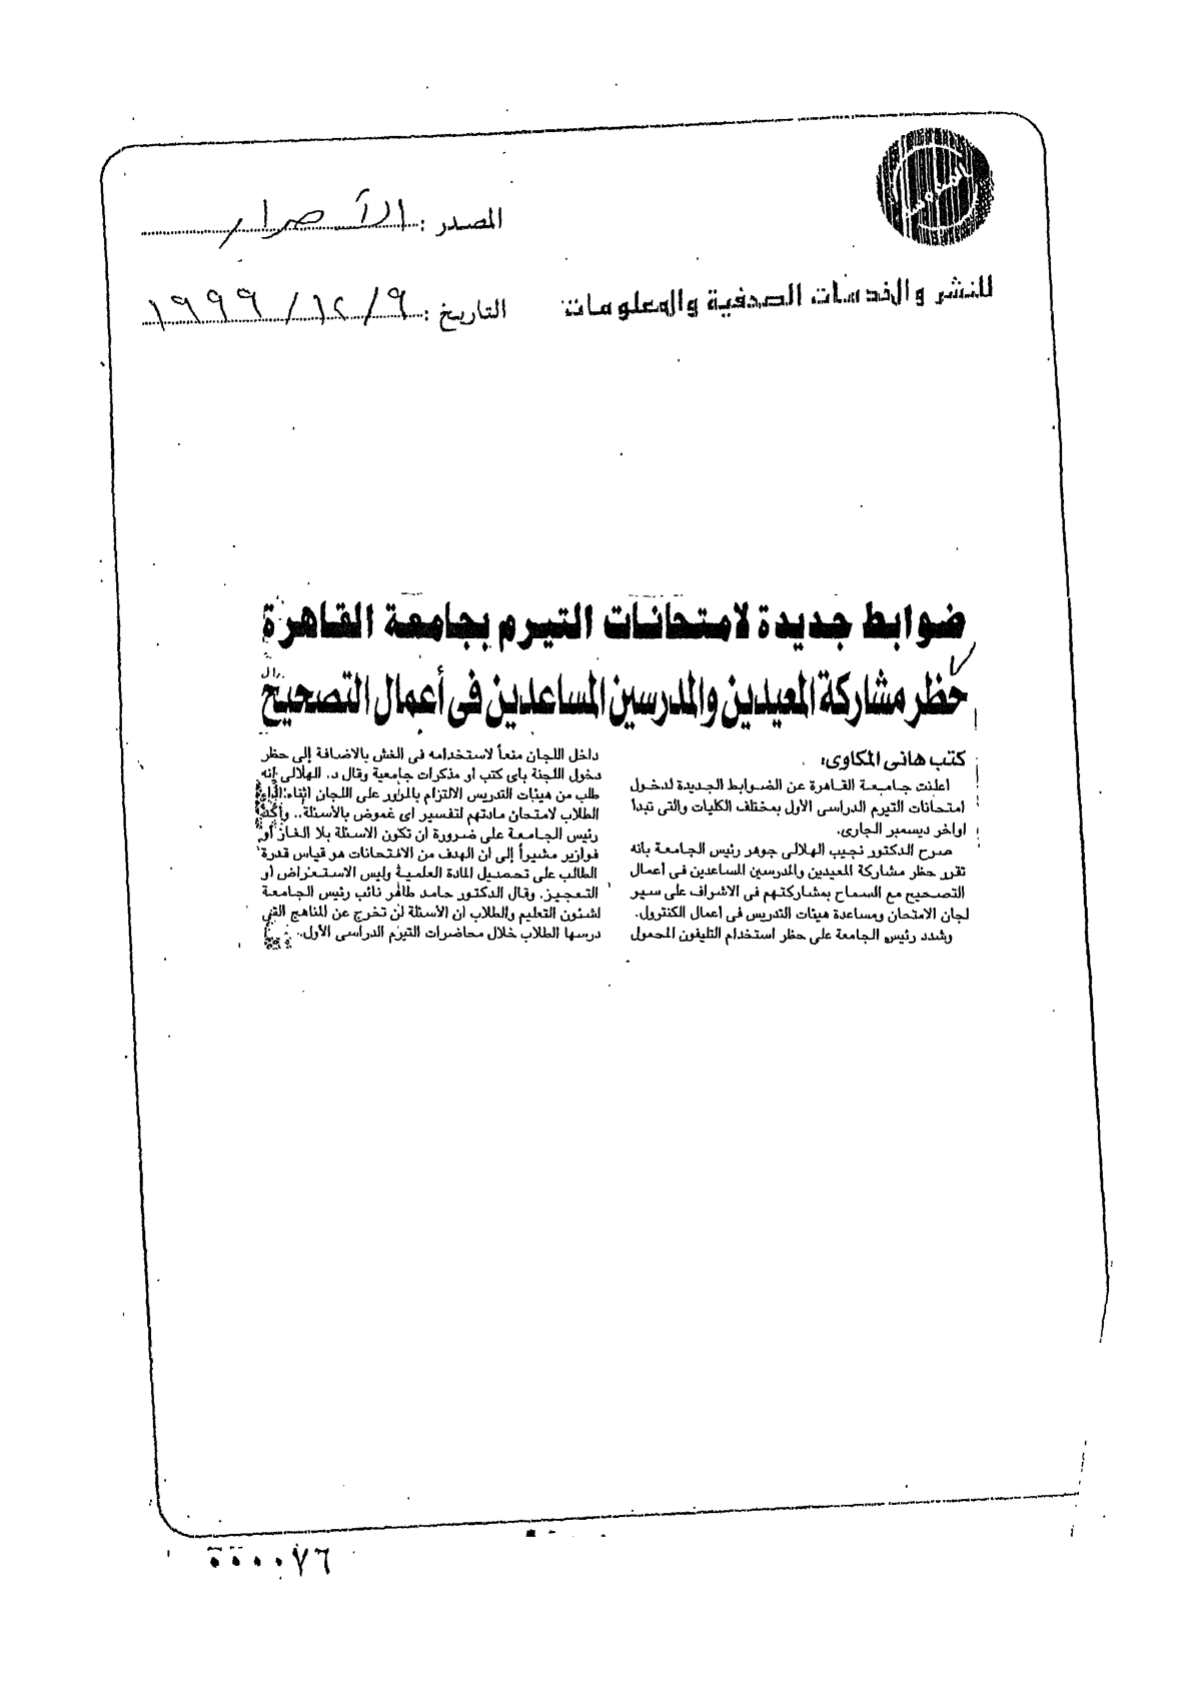 المصدر : الأحرار
للنشر والخدمات الصحفية والمعلومات
التاريخ : ٩ / ١٢ / ١٩٩٩
ضوابط جديدة لامتحانات التيرم بجامعة القاهرة
حظر مشاركة المعيدين والمدرسين المساعدين فى أعمال التصحيح
كتب هانى المكاوى:
أعلنت جامعة القاهرة عن الضوابط الجديدة لدخول
امتحانات التيرم الدراسى الأول بمختلف الكليات والتى تبدأ
اواخر ديسمبر الجارى.
صرح الدكتور نجيب الهلالى جوهر رئيس الجامعة بانه
تقرر حظر مشاركة المعيدين والمدرسين المساعدين فى أعمال
التصحيح مع السماح بمشاركتهم فى الاشراف على سير
لجان الامتحان ومساعدة هيئات التدريس فى أعمال الكنترول.
وشدد رئيس الجامعة على حظر استخدام التليفون المحمول
داخل اللجان منعاً لاستخدامه فى الغش بالاضافة إلى حظر
دخول اللجنة باى كتب أو مذكرات جامعية وقال د. الهلالى إنه
طلب من هيئات التدريس الالتزام بالمرور على اللجان اثناء أداء
الطلاب لامتحان مادتهم لتفسير اى غموض بالأسئلة.. وأكد
رئيس الجامعة على ضرورة ان تكون الاسئلة بلا الغاز أو
فوازير مشيراً إلى ان الهدف من الامتحانات هو قياس قدرة
الطالب على تحصيل المادة العلمية وليس الاستعراض أو
التعجيز. وقال الدكتور حامد طاهر نائب رئيس الجامعة
لشئون التعليم والطلاب ان الأسئلة لن تخرج عن المناهج التى
درسها الطلاب خلال محاضرات التيرم الدراسى الأول.